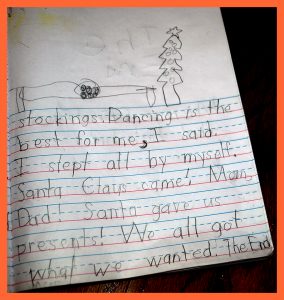 stockings. Dancing is the
best for me, I said.
I slept all by myself.
Santa Claus came! Mom,
Dad! Santa gave us
presents! We all got
what we wanted. The End